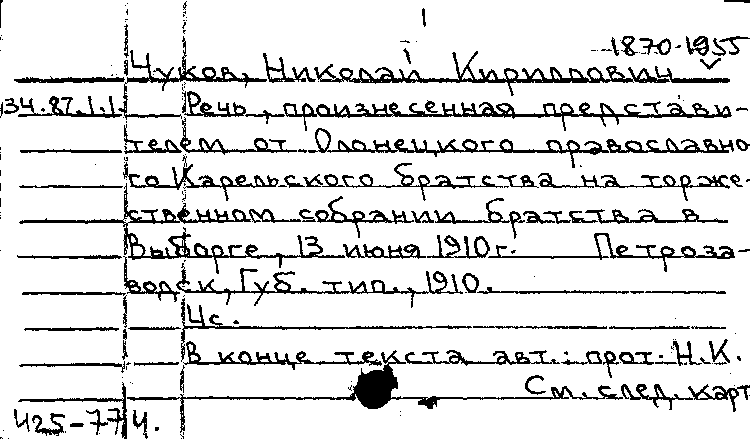 1870-1955
Чуков, Николай Кириллович
34.87.1.1. Речь, произнесенная представи-
телем от Олонецкого православно
го Карельского братства на торже-
ственном собрании братства в
Выборге, 13 июня 1910г. Петроза-
водск, Губ. тип., 1910.
4с.
В конце текста авт.: прот. Н.К.
См. след. карт
425-77 Ч.